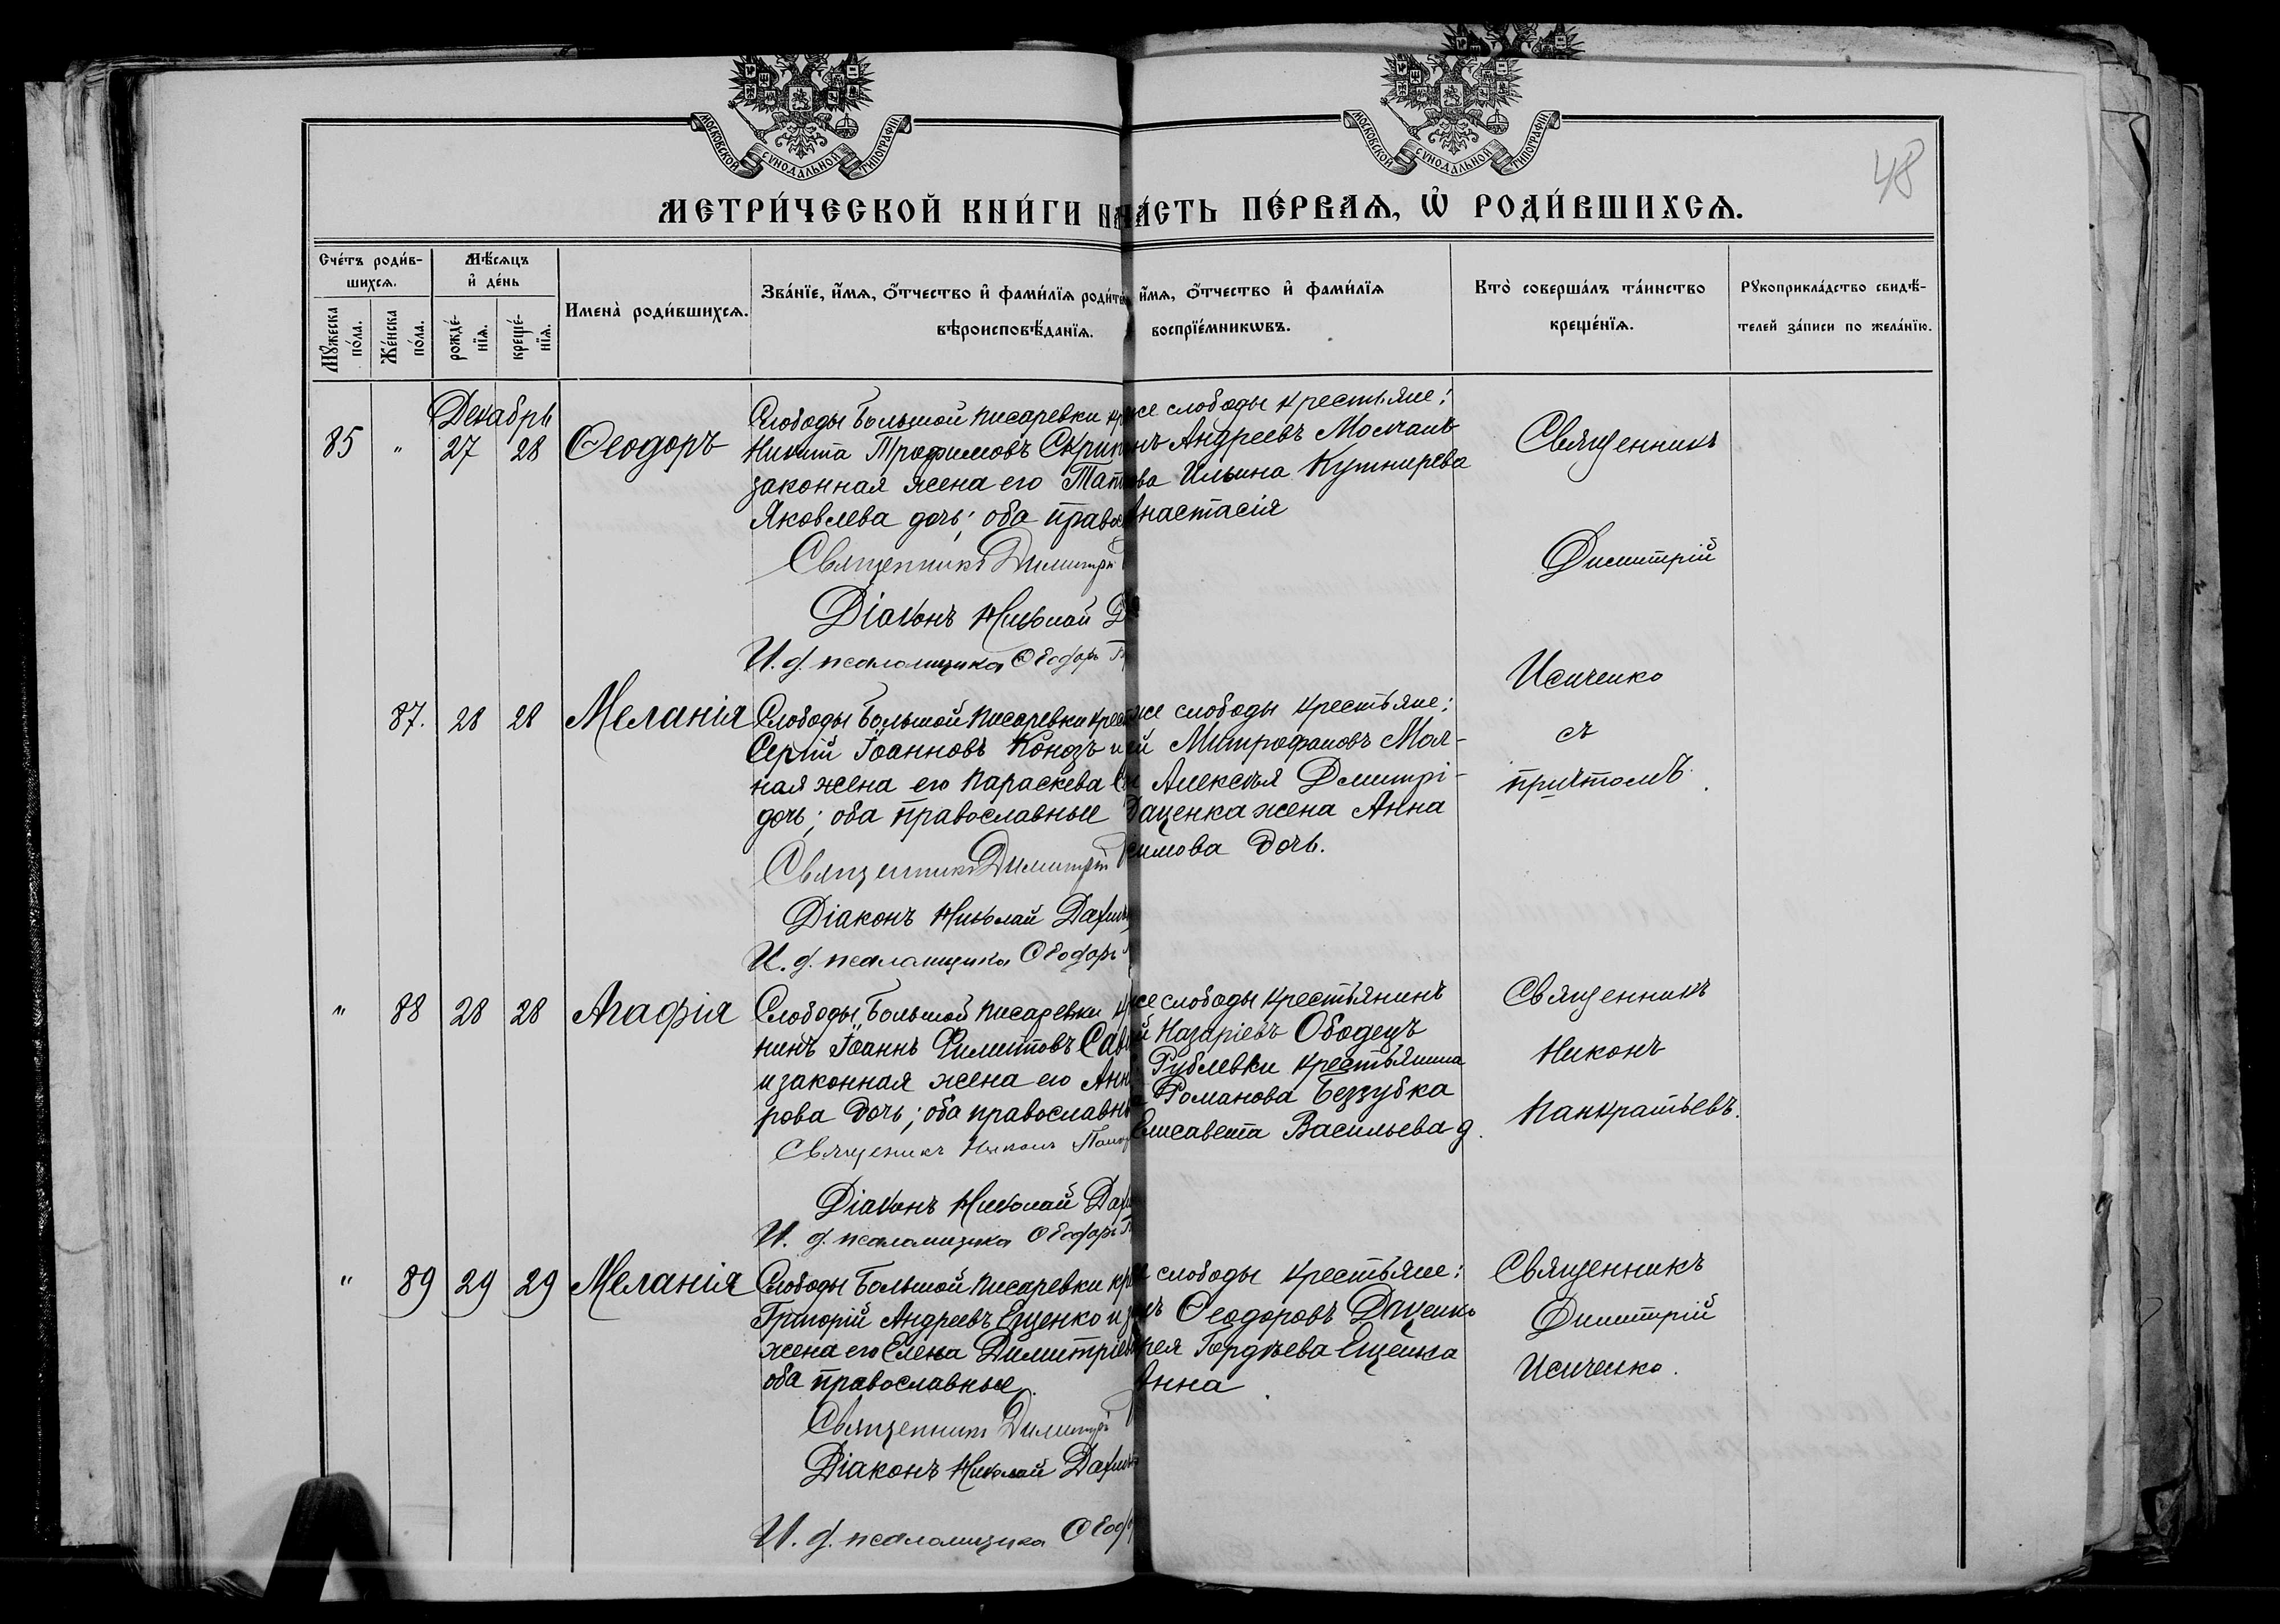 МОСКОВСКОЙ СѴНОДАЛЬНОЙ ТИПОГРАФІИ
МОСКОВСКОЙ СѴНОДАЛЬНОЙ ТИПОГРАФІИ
48
МЕТРИ́ЧЕСКОЙ КНИ́ГИ
ЧА́СТЬ ПЕ́РВАѦ, Ѽ РОДИ́ВШИХСѦ.
Сче́тъ роди́в-
шихсѧ.
Мѣ́сѧцъ
и҆ де́нь
Мꙋ́жеска
по́ла.
Же́нска
по́ла.
рожде́-
нїѧ.
креще́-
нїѧ.
Имена̀ роди́вшихсѧ.
Зва́нїе, и҆́мѧ, ѻ҆́тчество и҆ фами́лїѧ
вѣроисповѣ́данїѧ.
и҆́мѧ, ѻ҆́тчество и҆ фами́лїѧ
воспрїе́мникѡвъ.
Кто̀ соверша́лъ та́инство
креще́нїѧ.
Рꙋкоприкла́дство свидѣ́-
телей за́писи по жела́нїю.
Декабрь
85 " 27 28 Ѳеодоръ
Слободы Большой Писаревки
Никита Трофимовъ
законная жена его
Яковлева дочь; оба
Священникъ Димитрій
Діаконъ Николай
И. д. псаломщика Ѳеодоръ
же слободы крестьяне:
Андреевъ Молчан-
Ильина Кушнирева
Анастасія
Священникъ
Димитрій
Исиченко
съ
причтомъ.
87. 28 28 Меланія
Слободы Большой Писаревки
Сергій Іоанновъ Конозъ и
ная жена его Параскева
дочь; оба православные
Священникъ Димитрій
Діаконъ Николай
И. д. псаломщика Ѳеодоръ
же слободы крестьяне:
Митрофановъ Мол-
Алексѣя Дмитрі-
Даценка жена Анна
дочь.
" 88 28 28 Агафія
Слободы Большой Писаревки
нинъ Іоаннъ Филиповъ
и законная жена его
рова дочь; оба
Священникъ Никонъ
Діаконъ Николай
И. д. псаломщика Ѳеодоръ
же слободы крестьянинъ
Назаріевъ Ободецъ
Рублевки крестьянина
Романова Беззубка
Елисавета Васильева д.
Священникъ
Никонъ
Панкратьевъ.
" 89 29 29 Меланія
Слободы Большой Писаревки
Григорій Андреевъ Ещенко и
жена его Елена
оба православные.
Священникъ Димитрій
Діаконъ Николай
И. д. псаломщика
слободы крестьяне:
Ѳеодоровъ Даценко
Гордѣева Ещенка
Анна
Священникъ
Димитрій
Исиченко.